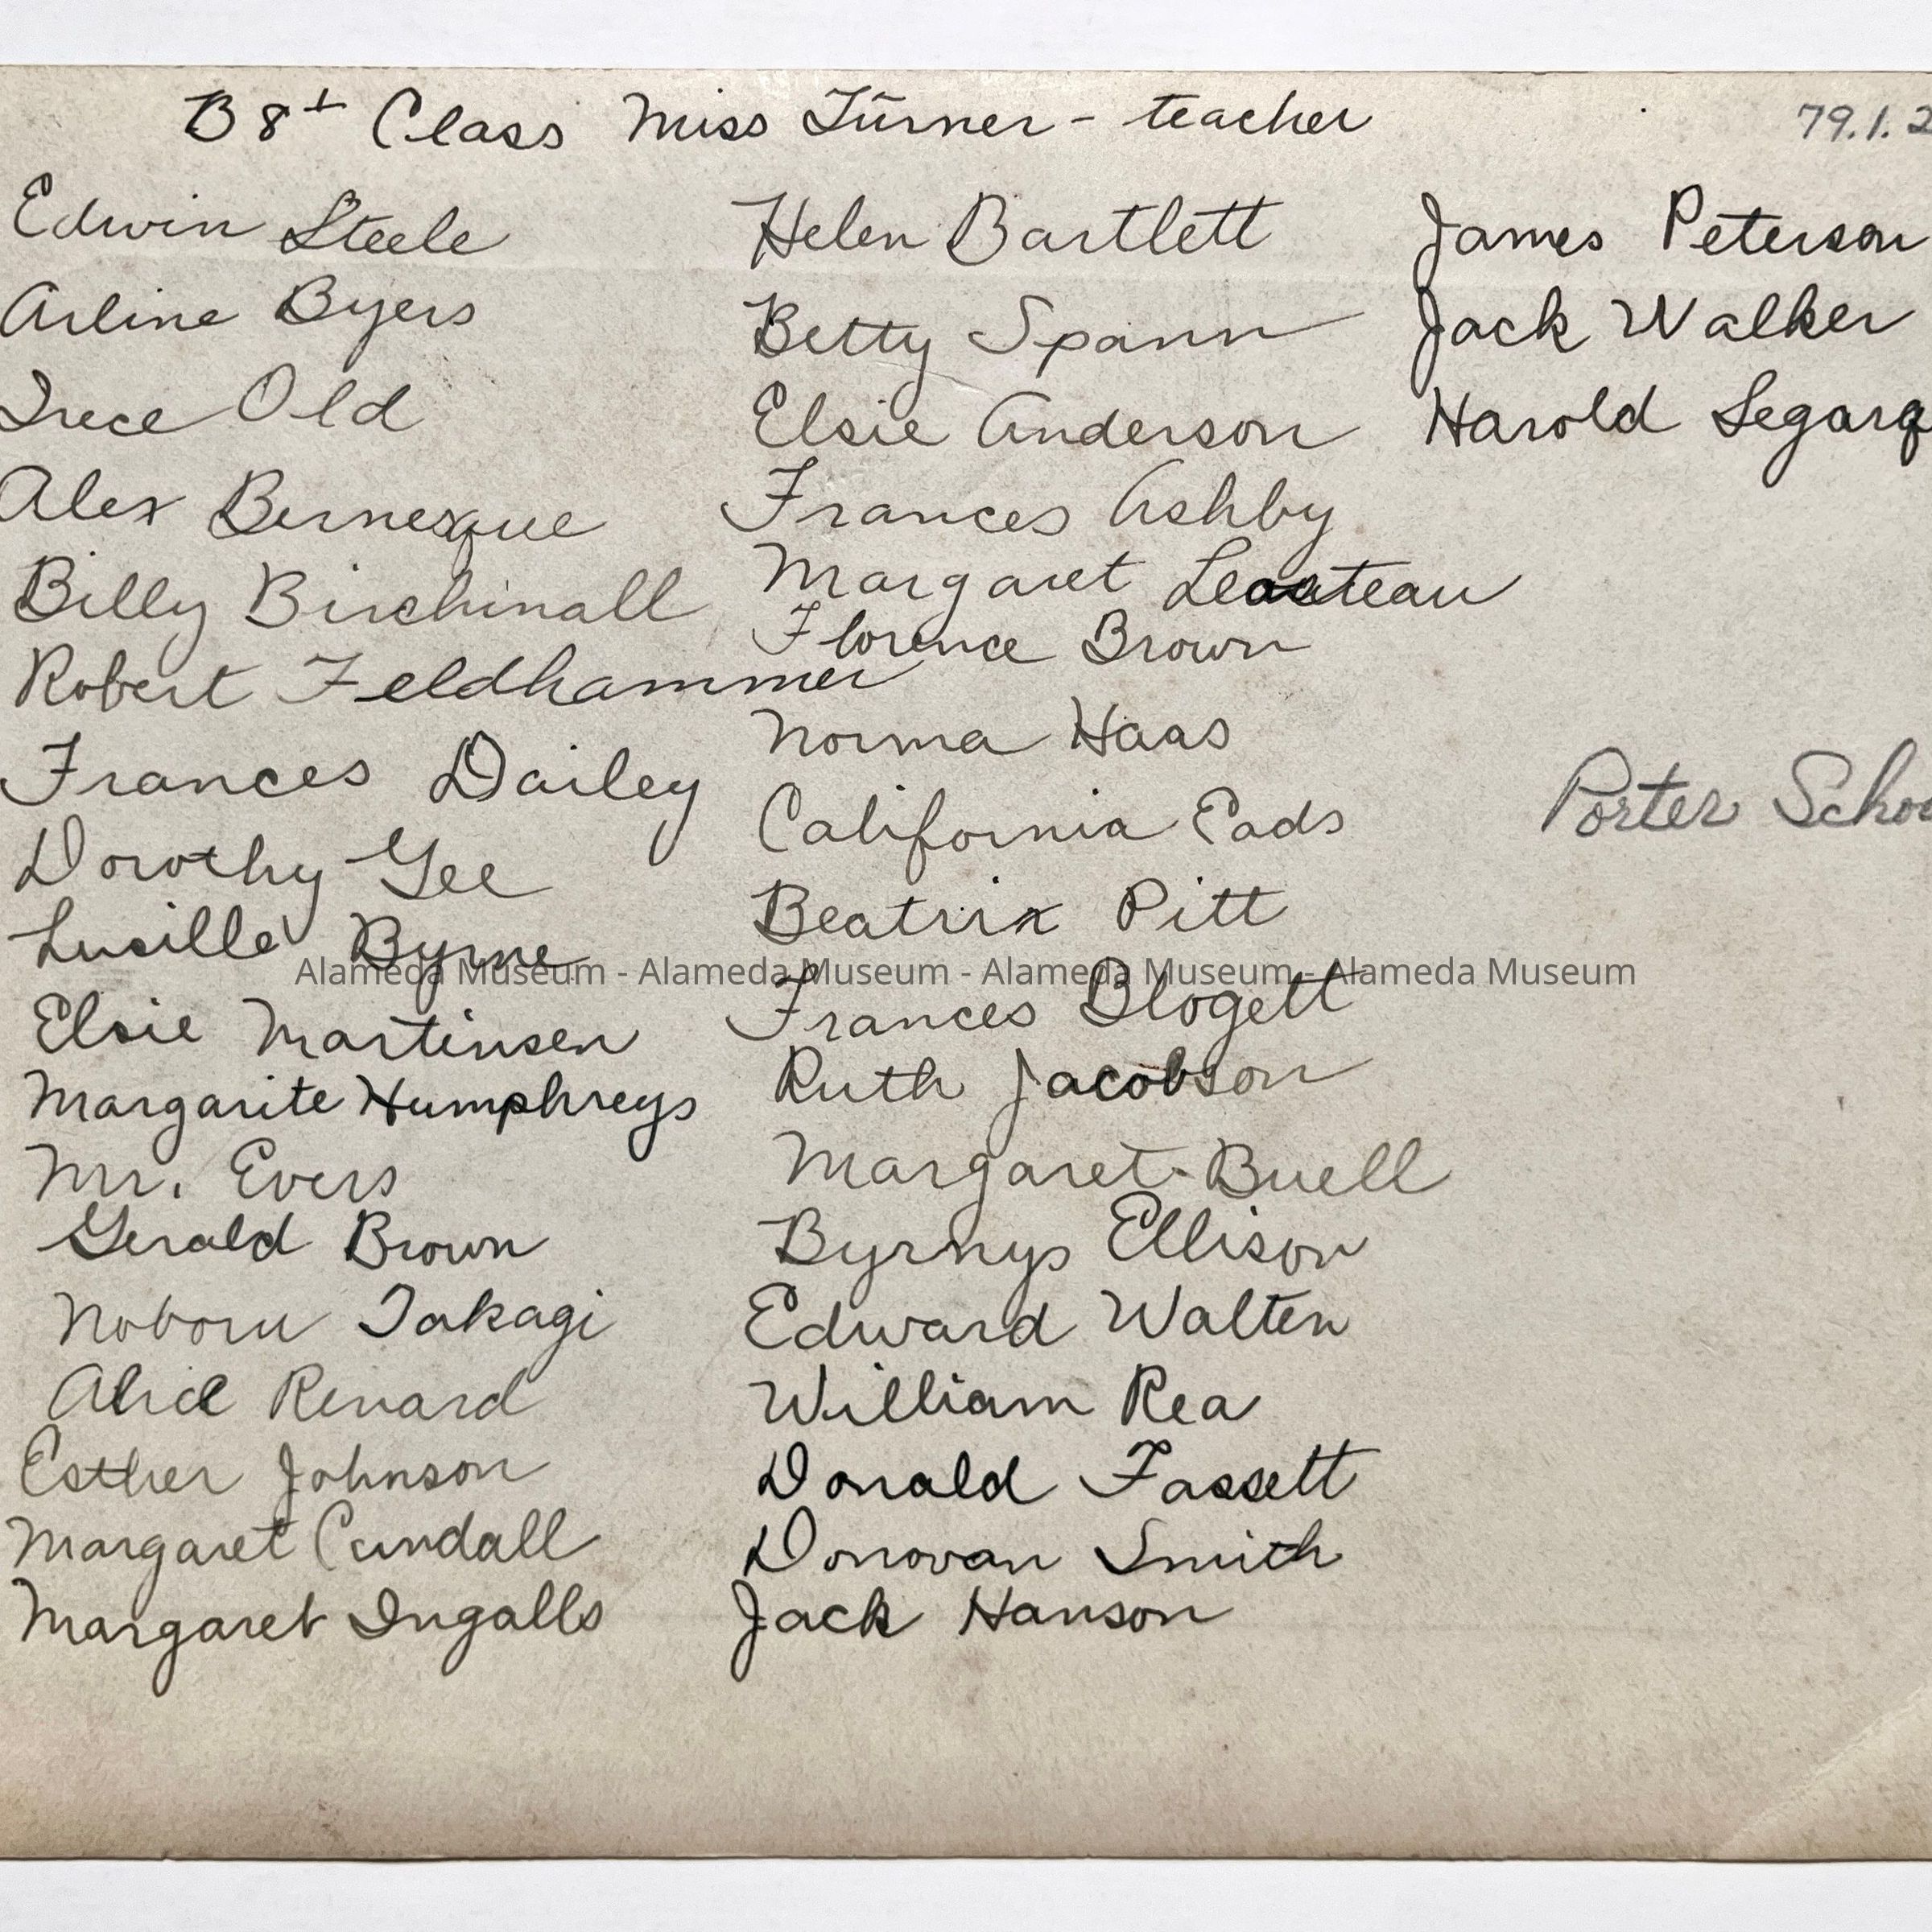 B 8th Class Miss Turner - teacher
79.1.2
Edwin Steele
Arline Byers
Irece Old
Alex Bernesque
Billy Birchinall
Robert Feldhammer
Frances Dailey
Dorothy Gee
Lucille Byrne
Elsie Martinsen
Margarite Humphreys
Mr. Evers
Gerald Brown
Noboru Takagi
Alice Renard
Esther Johnson
Margaret Cundall
Margaret Ingalls
Helen Bartlett
Betty Spann
Elsie Anderson
Frances Ashby
Margaret
Florence Brown
Norma Haas
California Eads
Beatrix Pitt
Frances Blogett
Ruth Jacobson
Margaret Buell
Byrnys Ellison
Edward Walten
William Rea
Donald Fassett
Donovan Smith
Jack Hanson
James Peterson
Jack Walker
Harold
Porter Schoo
Alameda Museum - Alameda Museum - Alameda Museum - Alameda Museum